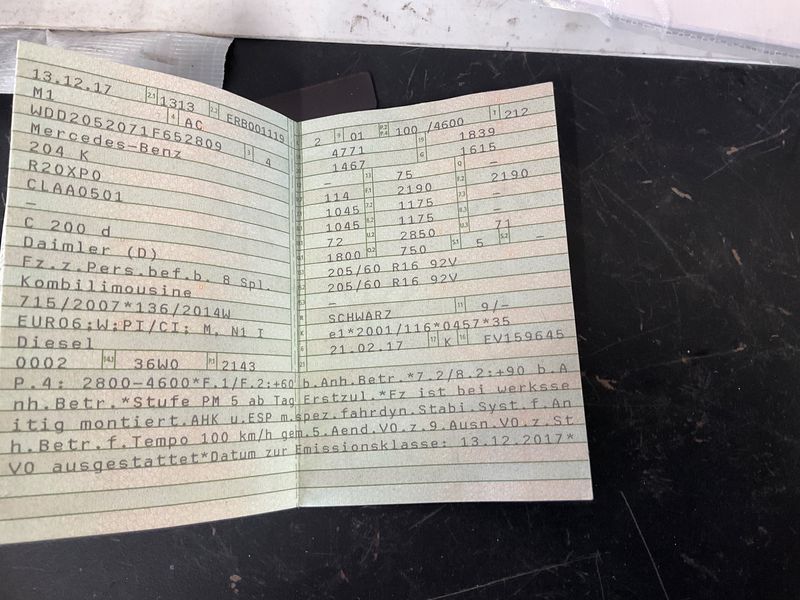 13.12.17 2.1 1313 2.2 ERB001119
M1 4 AC
WDD2052071F652809
Mercedes-Benz 3 4
204 K
R20XP0
CLAA0501
–
C 200 d
Daimler (D)
Fz.z.Pers.bef.b. 8 Spl.
Kombilimousine
715/2007*136/2014W
EURO6;W;PI/CI; M, N1 I
Diesel
0002 14.1 36W0 P.1 2143
2 9 01 P.2 P.4 100 /4600 T 212
4771 1839
1467 G 1615
– 13 75 Q –
114 F.1 2190 F.2 2190
1045 7.2 1175 7.3 –
1045 8.2 1175 8.3 –
72 U.2 2850 U.3 71
1800 O.2 750 S.1 5 S.2 –
205/60 R16 92V
205/60 R16 92V
–
SCHWARZ 11 9/–
e1*2001/116*0457*35
21.02.17 17 K 16 FV159645
P.4: 2800-4600*F.1/F.2:+60 b.Anh.Betr.*7.2/8.2:+90 b.A
nh.Betr.*Stufe PM 5 ab Tag Erstzul.*Fz ist bei werksse
itig montiert.AHK u.ESP m.spez.fahrdyn.Stabi.Syst f.An
h.Betr.f.Tempo 100 km/h gem.5.Aend.VO.z.9.Ausn.VO.z.St
VO ausgestattet*Datum zur Emissionsklasse: 13.12.2017*